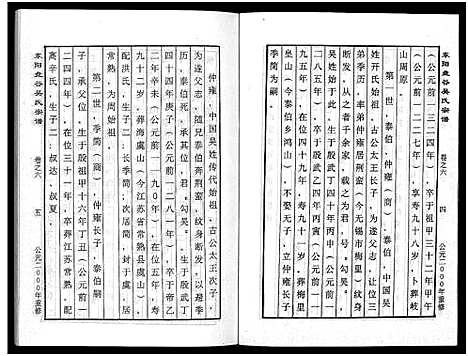 東陽盘谷吴氏宗谱
卷之六
四
公元二000年重修
(公元前一三二四年),卒于祖甲三十二年甲午
(公元前一二二七年),享年九十八岁,卜葬岐
山周原。
第一世,泰伯,仲雍,泰伯,中国吴
姓开氏始祖,古公太王长子,为遂父志,让位三
弟季历,率弟仲雍居荆蛮(今无锡市梅里),纹身
断发,从之者千余家,载之为君,号。勾吴。
吴姓始于此,生于殷武丁四十年丙申(公元前一
二八五年),在位四十九年,寿九十一岁,葬梅里
皇山(今泰伯乡鸿山),不娶无子,立仲雍长子
季简为嗣。
仲雍,中国吴姓传代始祖,古公太王次子,
为遂父志,随兄泰伯奔荆蛮,纹身断发,以是季
历,泰伯死,承其位,君。勾吴。生于殷武丁
四十四年庚子(公元前一二八一年),卒于帝乙
二年辛未(公元前一一九0年),在位五年,寿
九十二岁,葬海虞山(今江苏省常熟县虞山),
配洪氏,生子二:长季简;次居简,封于虞,居
常熟,为周始祖。
第二世,季简(商),仲雍长子,泰伯嗣
子,承父位,生于殷祖甲十六年丁丑(公元前一
二四四年),在位三十一年,卒葬江苏常熟,配
高辛氏,生子二:叔达,叔夏。
東陽盘谷吴氏宗谱
卷之六
五
公元二000年重修